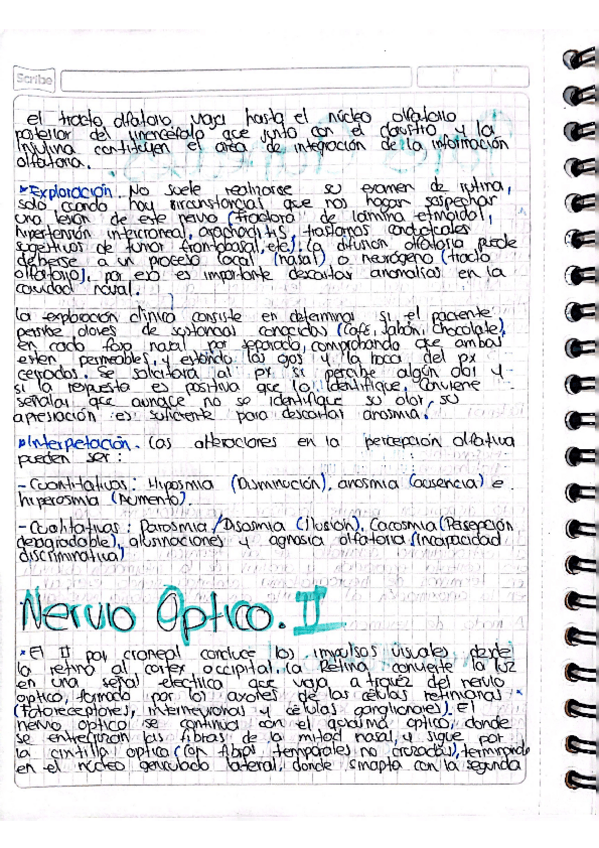 Scribe
el tracto olfatorio viaja hasta el núcleo olfatorio
posterior del que junto con el claustro y la
constituyen el area de integración de la información
olfatoria.
*Exploración. No suele realizarse su examen de rutina,
solo cuando hay circunstancias que nos hagan sospechar
una lesión de este nervio (fractura de lamina etmoidal,
hipertensión intercraneal, trastornos conductales
sugestivos de tumor frontobasal, etc). la difusion olfatoria puede
deberse a un proceso local (nasal) o neurógeno (tracto
olfatorio), por eso es importante descartar anomalías en la
cavidad nasal.
La exploración clínica consiste en determinar si el paciente
percibe olores de sustancias conocidas (Café, Jabón, Chocolate),
en cada fosa nasal por separado, comprobando que ambas
esten permeables, y estando los ojos y la boca del px
cerrados. Se solicitará al px si percibe algún olor y
si la respuesta es positiva que lo identifique, conviene
señalar que aunque no se identifique su olor, su
apresiación es suficiente para descartar anosmia.
*Interpretación. Las alteraciones en la percepción olfativa
pueden ser:
-Cuantitativas: Hiposmia (Disminución), anosmia (ausencia) e
hiperosmia (Aumento).
-Cualitativas: Parosmia/Disosmia (ilusión), Cacosmia (Persepción
desagradable), alusinaciones y agnosia olfatoria (Incapacidad
discriminativa)
Nervio Optico. II
*El II par craneal conduce los impulsos visuales desde
la retina al cortex occipital. La Retina convierte la luz
en una señal electrica que viaja a travéz del nervio
optico, formado por los axones de las células retinianas
(fotoreceptores, interneuronas y células ganglionares). El
nervio optico se continua con el quiasma optico, donde
se entrecruzan las fibras de la mitad nasal, y sigue por
la cintilla optica (con fibras temporales no cruzadas), terminando
en el núcleo geniculado lateral, donde sinapta con la segunda